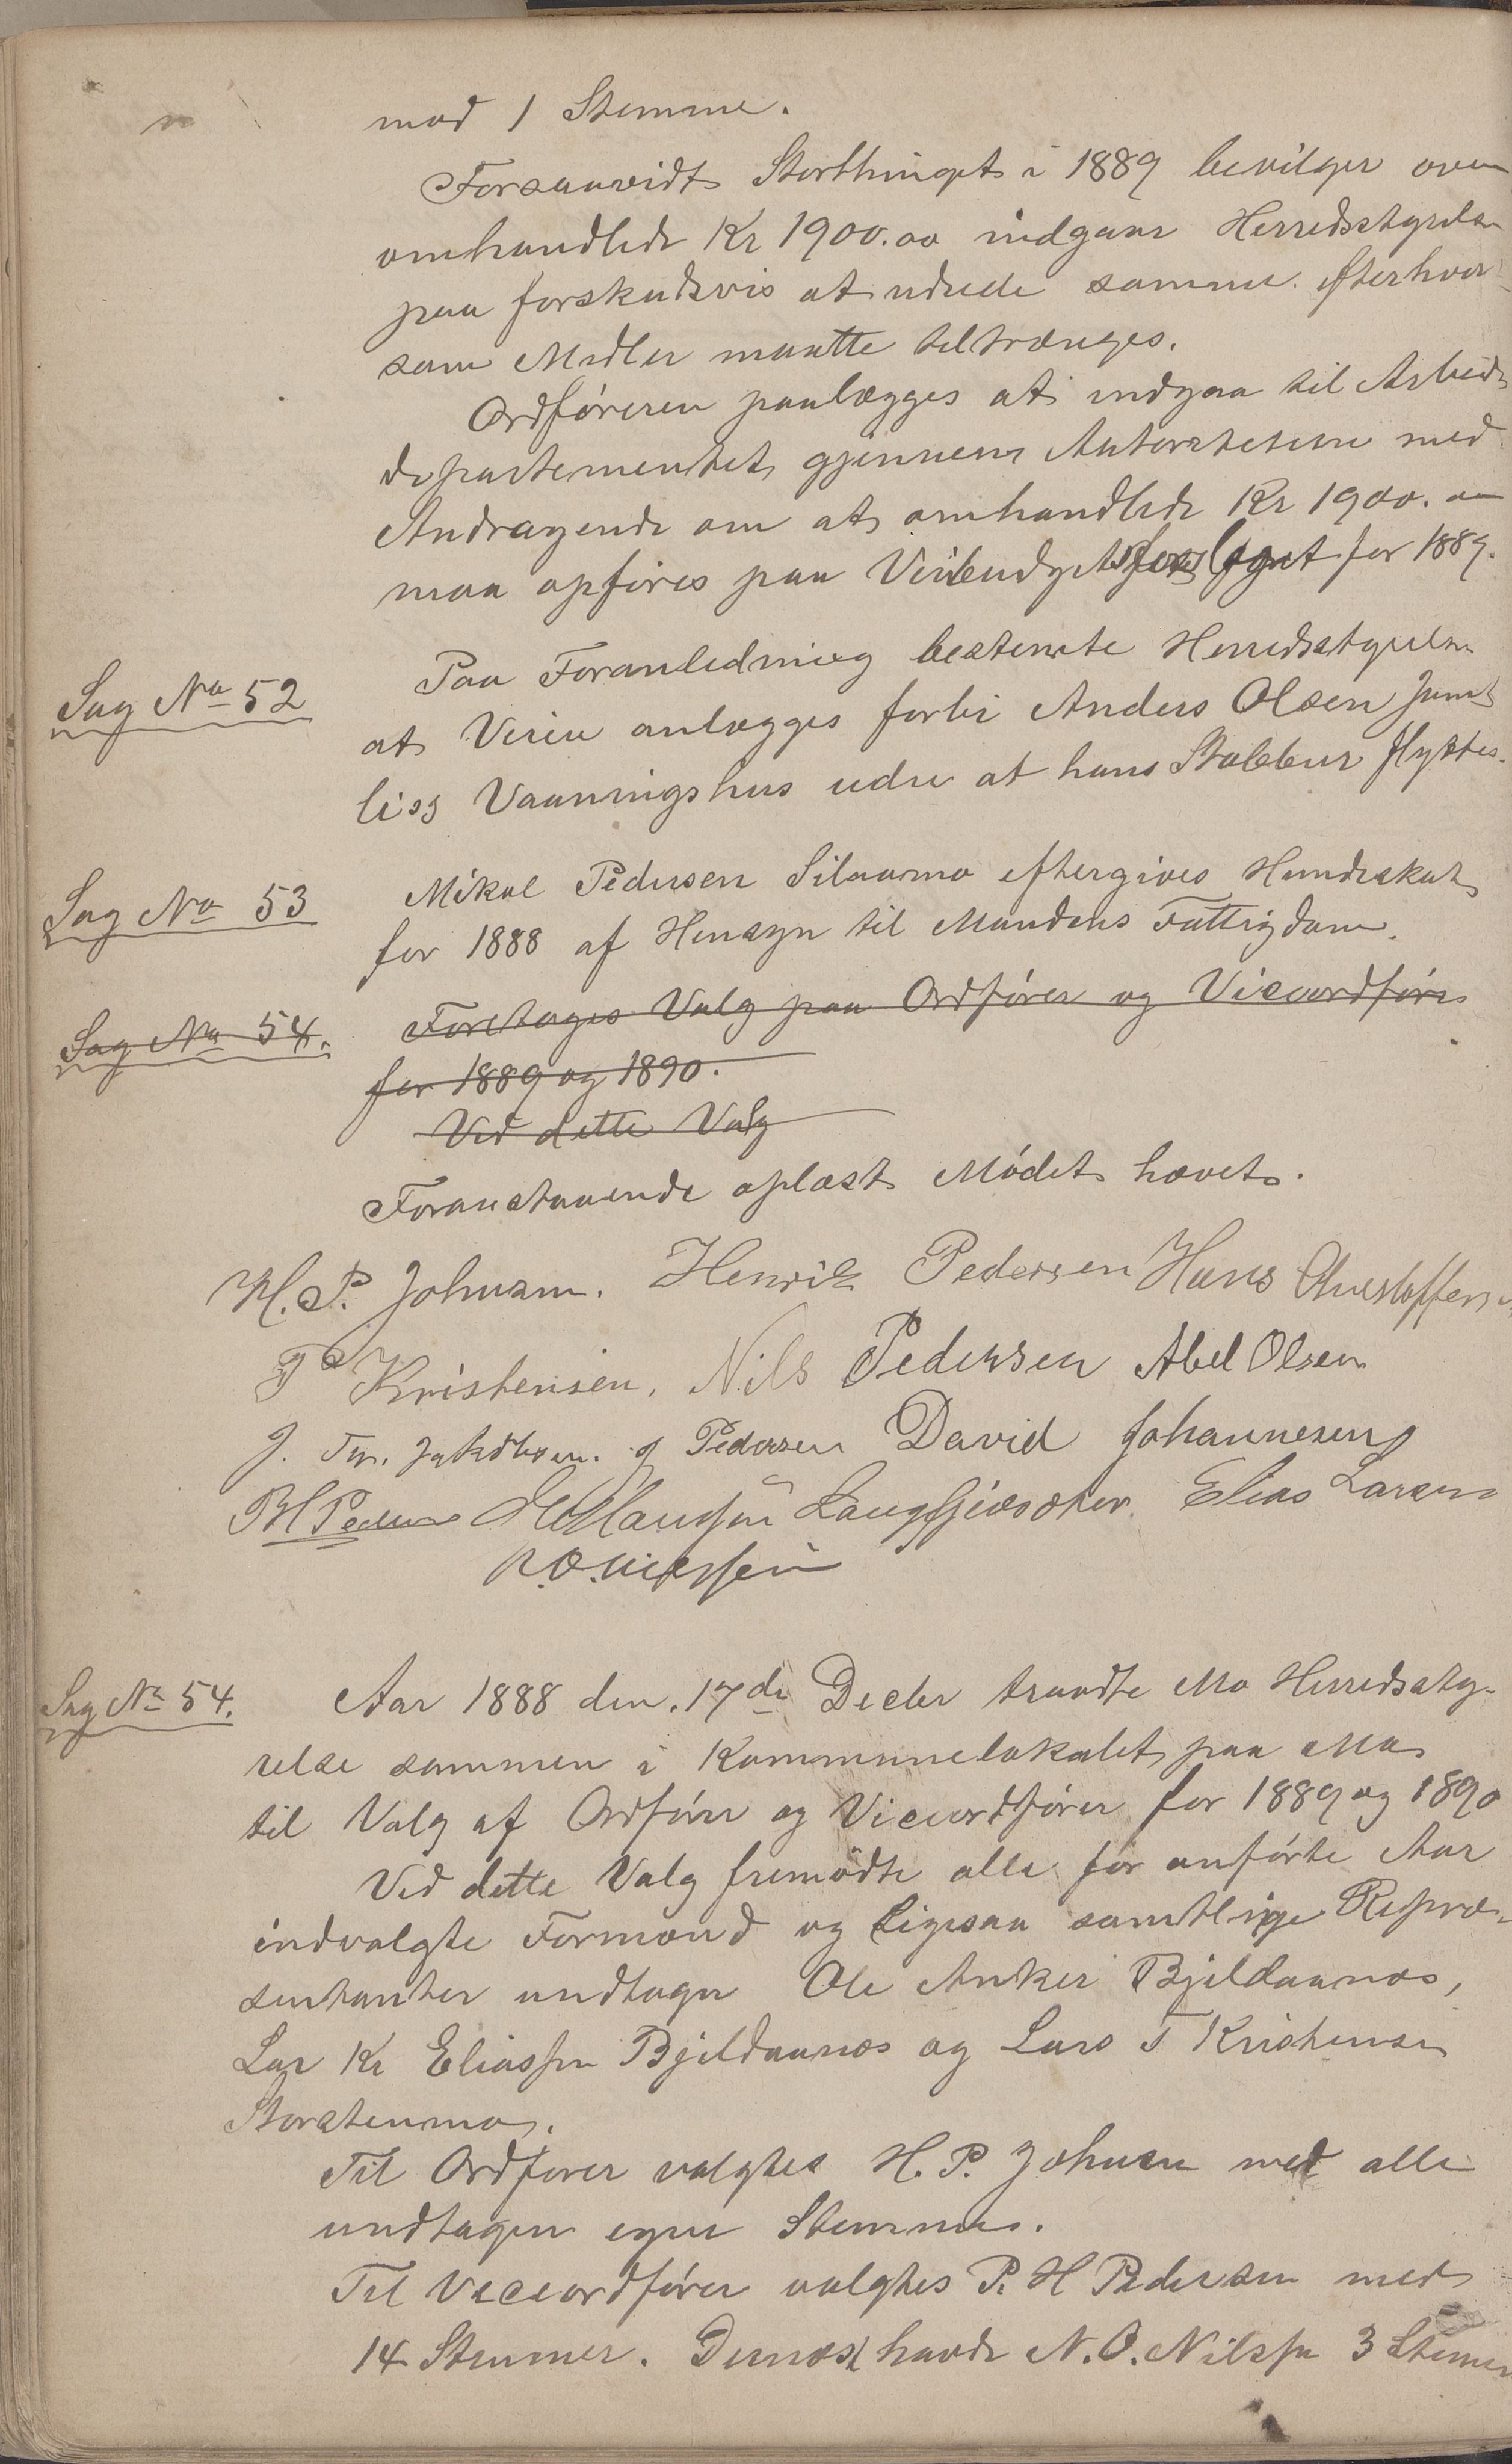 mod 1 Stemme.
Forsaavidt Storthinget i 1889 bevilger oven
omhandlede Kr 1900.00 indgaar Herredsstyrelsen
paa forskudsvis at udrede samme efterhver
som Midler maatte tiltrænges.
Ordføreren paalægges at indgaa til Arbeids
departementet gjennem Amtet med
Andragende om at omhandlede Kr 1900.00
maa opføres paa Veibudgetsforslaget for 1889.
Sag No 52
Paa Foranledning bestemte Herredsstyrelsen
at Veien anlægges forbi Anders Olsen Jamt
liss Vaaningshus uden at hans Stabbur flyttes.
Sag No 53
Mikal Pedersen Silaamo eftergives Hundeskat
for 1888 af Hensyn til Mandens Fattigdom.
Sag No 54.
Foretages Valg paa Ordfører og Viceordfører
for 1889 og 1890.
Ved dette Valg
Foranstaaende oplæst Mødet hævet.
H. P. Johnsen. Henrik Pedersen Hans Christoffersen
P Kristensen. Nils Pedersen Abel Olsen
J. Jakobsen. J Pedersen David Johannesen
P H Pedersen Langfjeldsæter. Elias Larsen
N. O. Nielssen
Sag No 54.
Aar 1888 den 17de Decbr traadte Mo Herredssty-
relse sammen i Kommunelokalet paa Mo
til Valg af Ordfører og Viceordfører for 1889 og 1890
Ved dette Valg fremødte alle for anførte Aar
indvalgte Formænd og ligesaa samtlige Repræ-
sentanter undtagen Ole Anker Bjeldaanæs,
Lars Kr Eliassen Bjeldaanæs og Lars T Kristensen
Storstenmo.
Til Ordfører valgtes H. P. Johnsen med alle
undtagen egen Stemmer.
Til Viceordfører valgtes P. H Pedersen med
14 Stemmer. Dernæst havde N. O. Nilssen 3 Stemmer